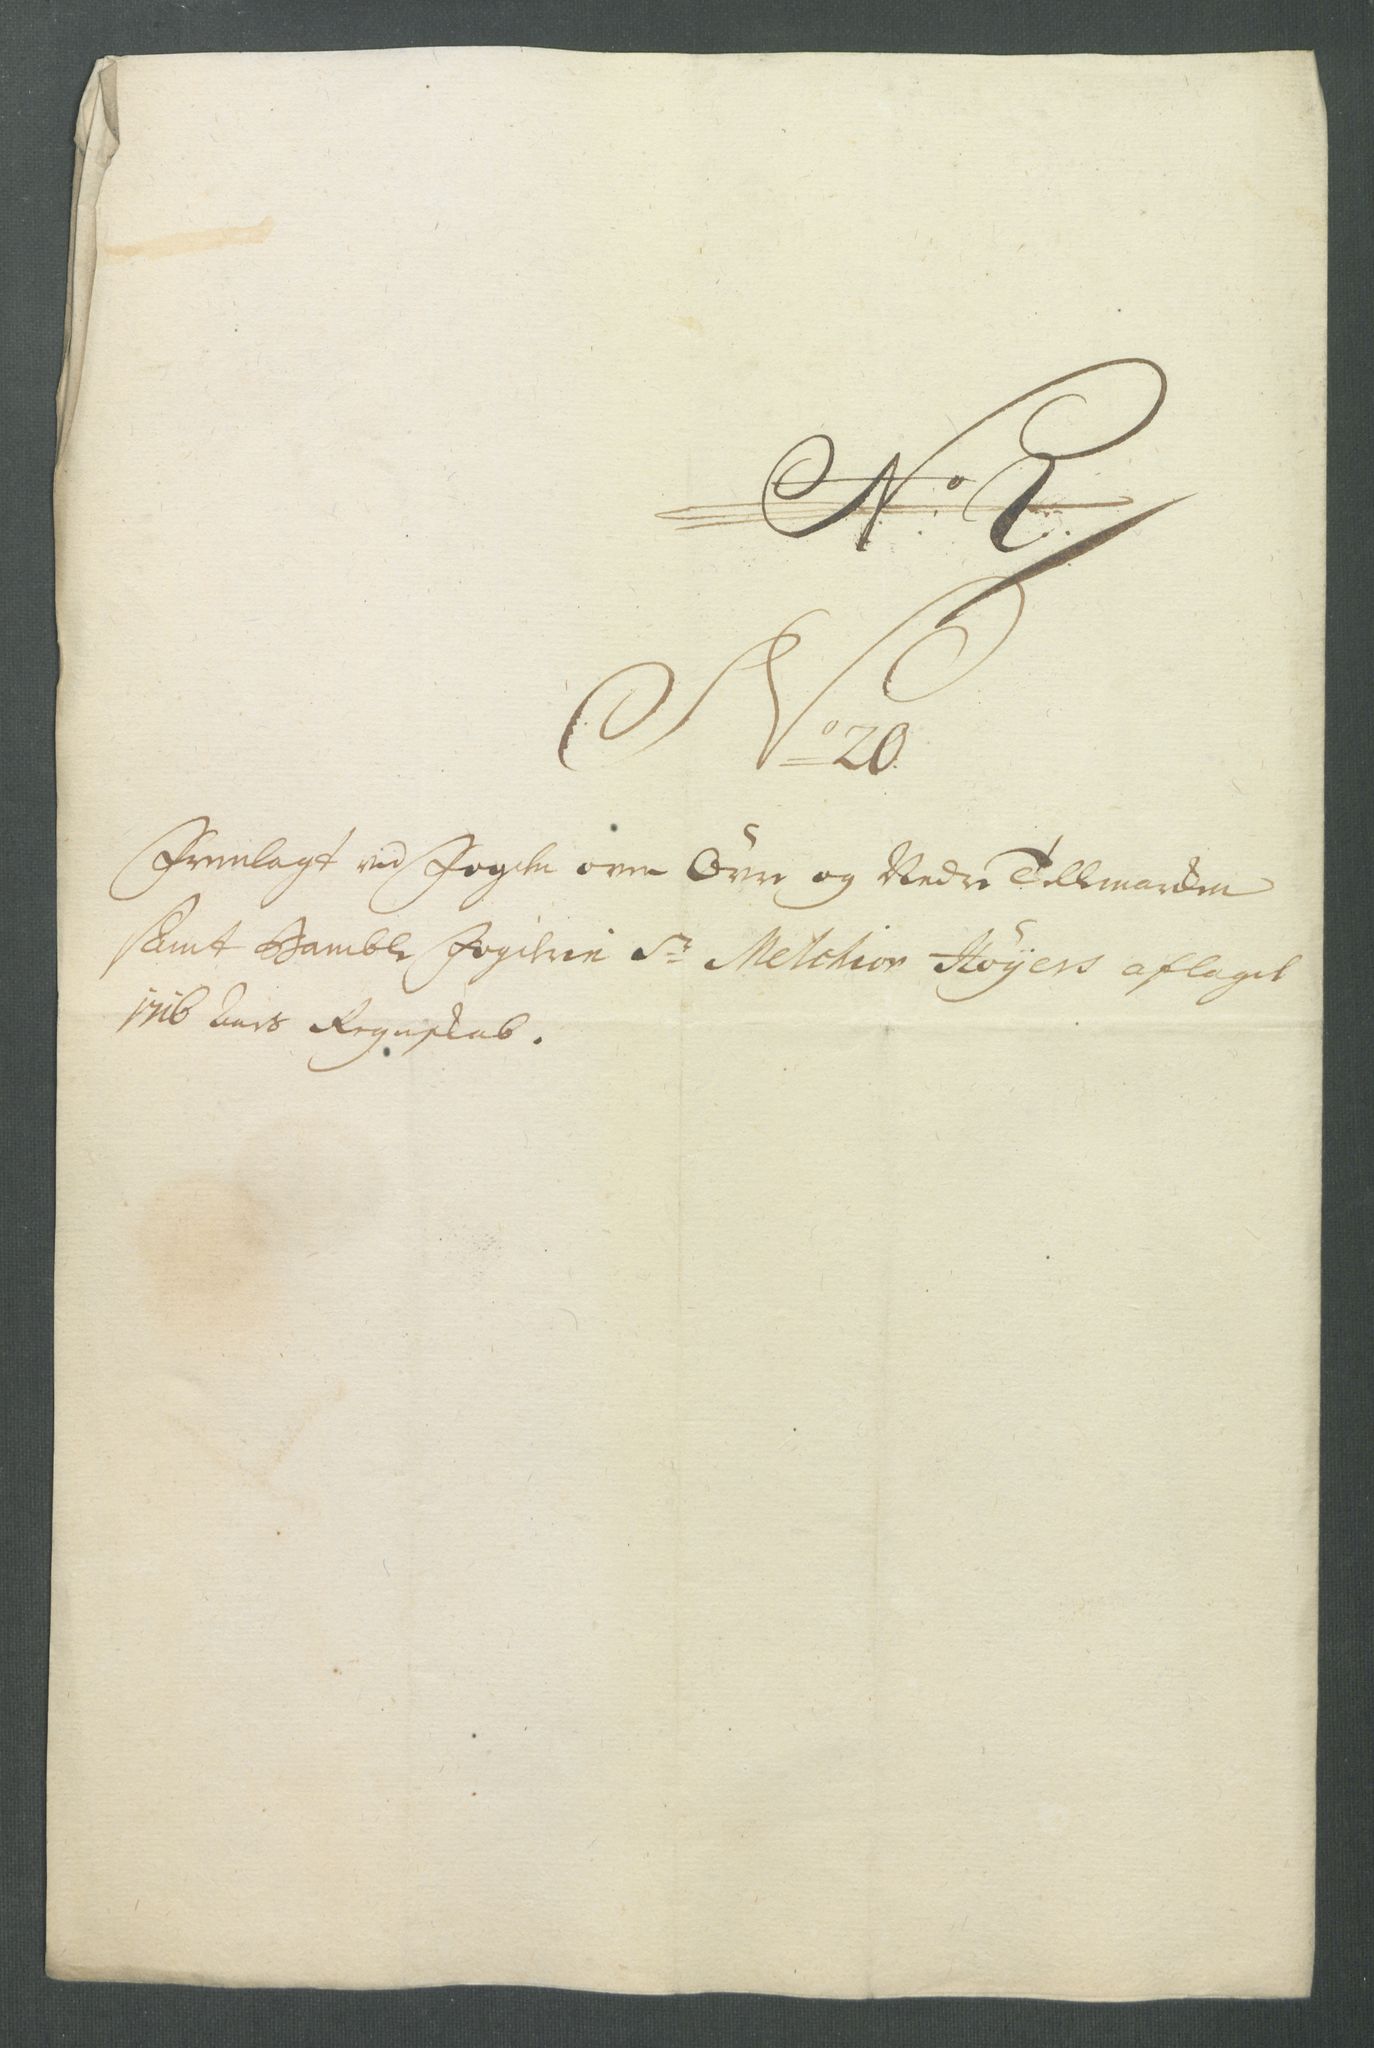 No 2.
No 20
Fremlagt ved Fogden over Öfre og Nedre Tellemarcken
samt Bamble Fogderie Sr Melchior Höyers aflagde
1716 Aars Regnskab.